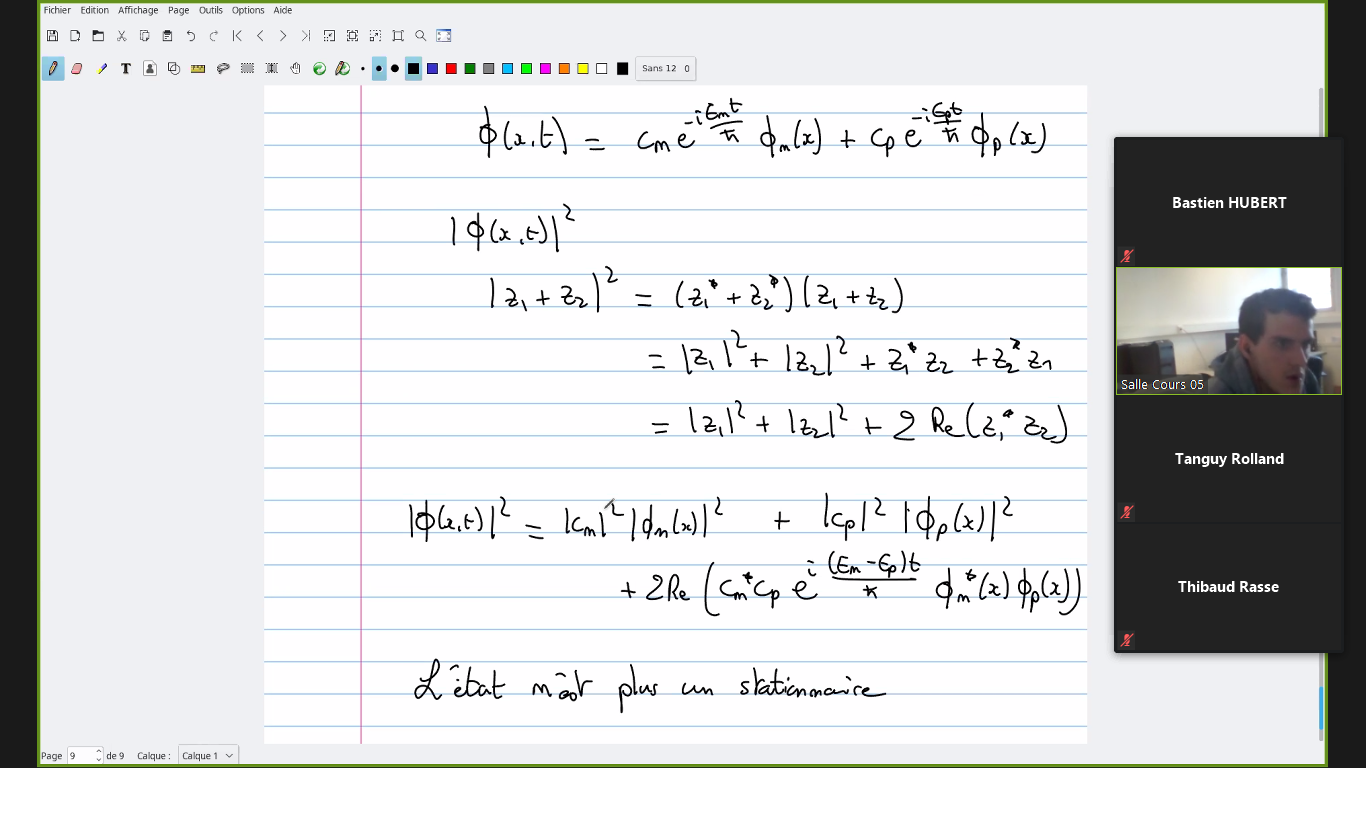 Fichier Edition Affichage Page Outils Options Aide
Sans 12 0
ϕ(x,t) = cₘ e^(-i Eₘt/ħ) ϕₘ(x) + cₚ e^(-i Eₚt/ħ) ϕₚ(x)
|ϕ(x,t)|²
|z₁ + z₂|² = (z₁* + z₂*)(z₁ + z₂)
= |z₁|² + |z₂|² + z₁* z₂ + z₂* z₁
= |z₁|² + |z₂|² + 2 Re(z₁* z₂)
|ϕ(x,t)|² = |cₘ|² |ϕₘ(x)|² + |cₚ|² |ϕₚ(x)|²
+ 2Re (cₘ* cₚ e^(i (Eₘ - Eₚ)t/ħ) ϕₘ*(x) ϕₚ(x))
L'état n'est plus un stationnaire
Bastien HUBERT
Salle Cours 05
Tanguy Rolland
Thibaud Rasse
Page 9 de 9 Calque : Calque 1